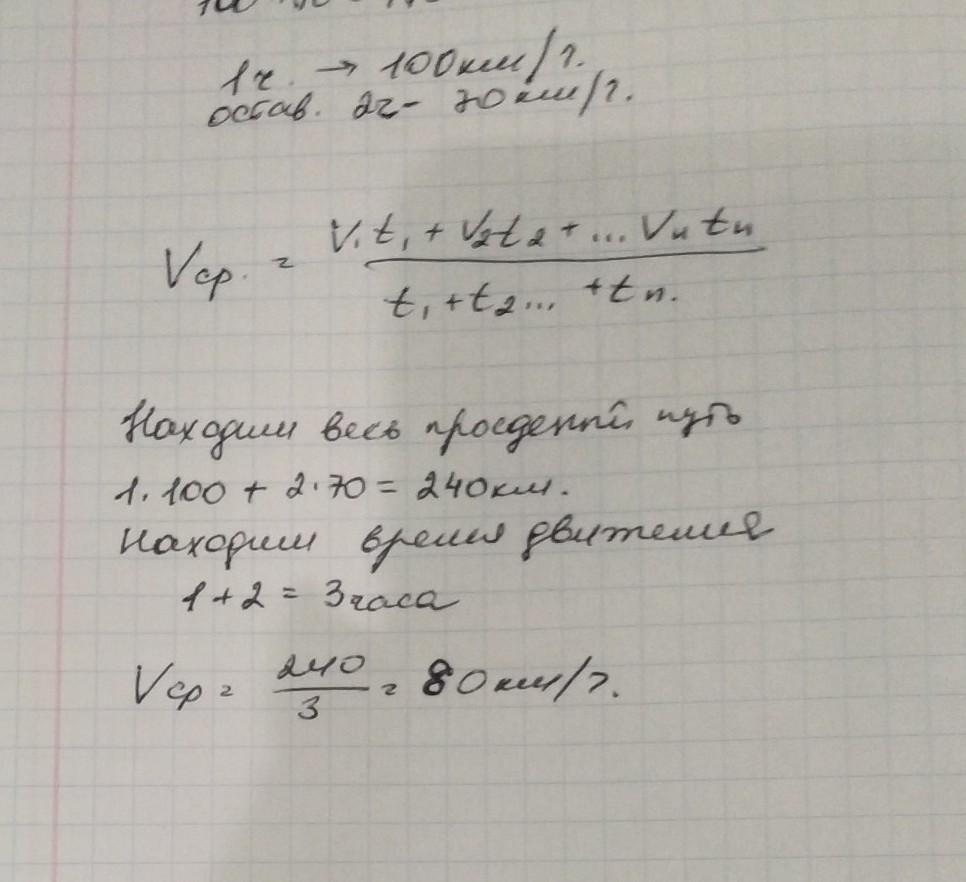 1ч. → 100км/ч.
остав. 2ч- 70км/ч.
Vср. = V₁t₁ + V₂t₂ + ... Vₙtₙ
t₁ + t₂ ... + tₙ.
Находим весь пройденный путь
1·100 + 2·70 = 240км.
Находим время движения
1+2 = 3часа
Vср = 240/3 = 80км/ч.